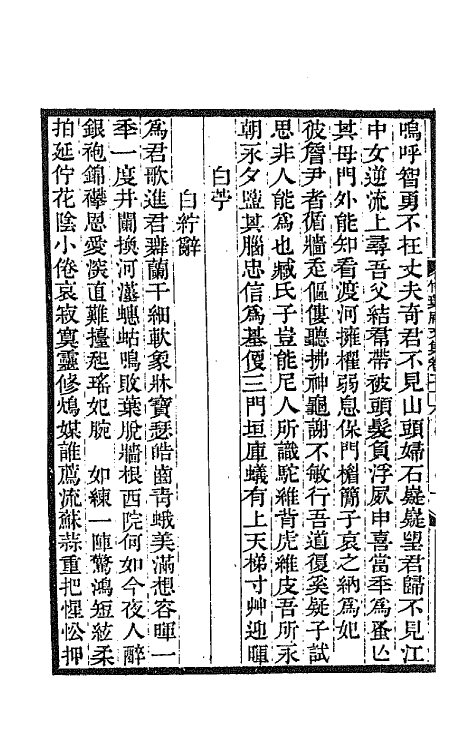 嗚呼智勇不枉丈夫奇君不見山頭婦石嶷嶷望君歸不見江
中女逆流上尋吾父結裙帶被頭髮負浮屍申喜當年為蚤亾
其母門外能知看渡河擁櫂弱息保門楯簡子哀之納為妃
彼詹尹者循牆走傴僂聽拂神龜謝不敏行吾道復奚疑子試
思非人能為也臧氏子豈能尼人所識駝維背虎維皮吾所永
朝永夕盬其腦忠信為基偃三門垣庫蟻有上天梯寸艸迎暉
白苧
白紵辭
為君歌進君舞蘭干細軟象牀寶瑟皓齒靑蛾美滿想容暉一
年一度井闌換河漢蟪蛄鳴敗葉脫牆根西院何如今夜人辭
銀袍錦襷恩愛淡直難擡起瑤妃腕 如練一陣驚鴻短紘柔
拍延佇花陰小倦哀寂寞靈修鴆媒誰薦流蘇蒜重把惺忪押